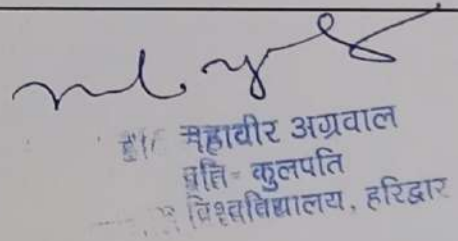 महावीर अग्रवाल
प्रति-कुलपति
विश्वविद्यालय, हरिद्वार